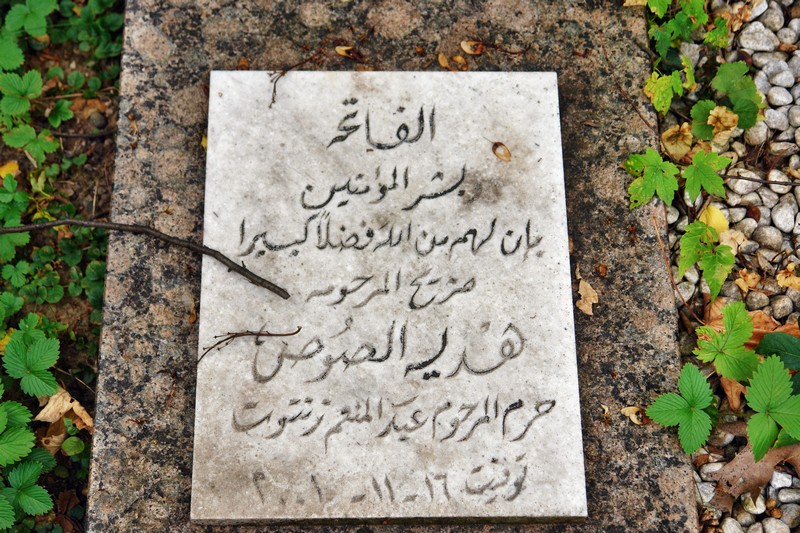 الفاتحه
بشر المؤمنين
بان لهم من الله فضلاً كبيرا
ضريح المرحومه
هديه الصُوص
حرم المرحوم عبد المنعم زنتوت
توفيت ١٦-١١-٢٠٠١